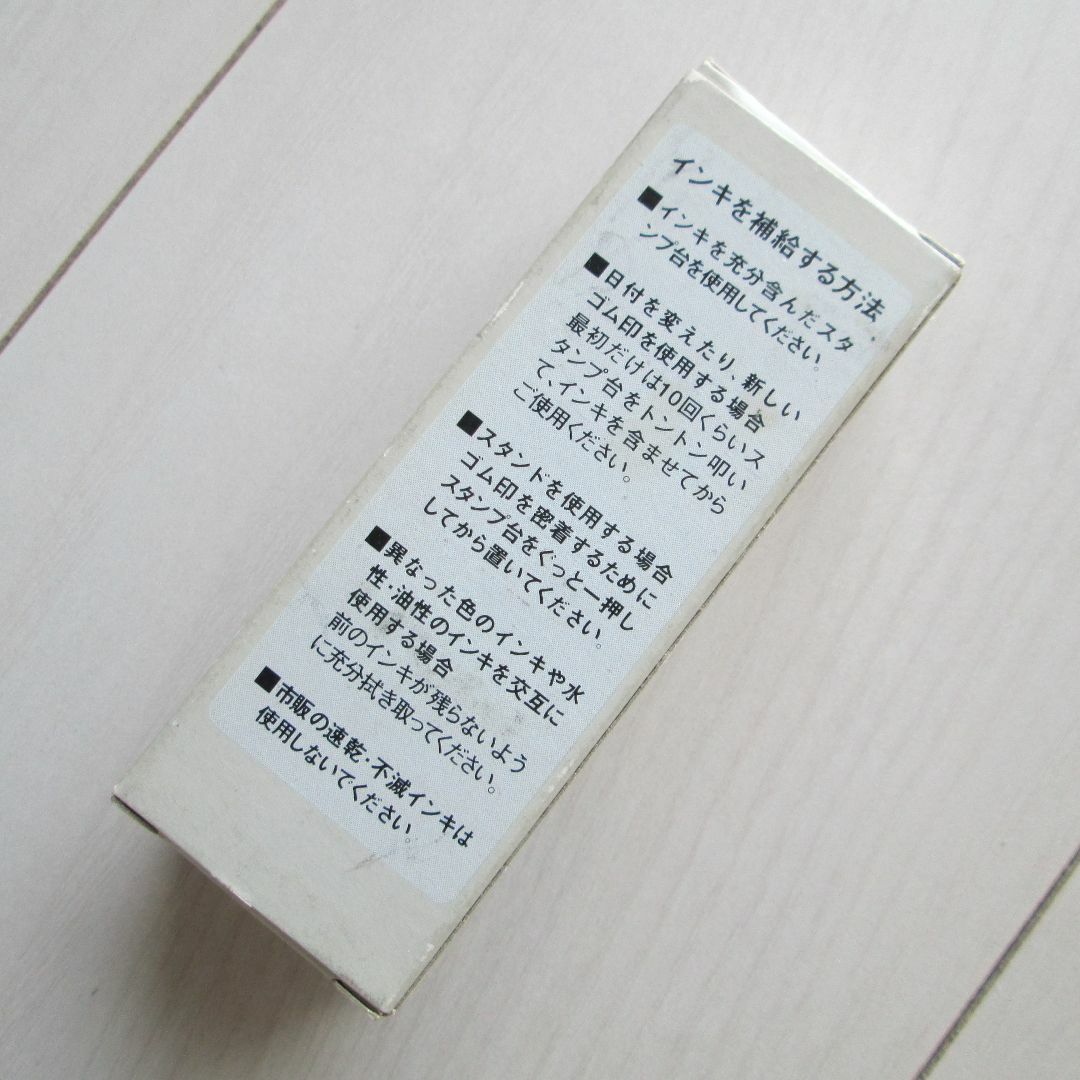 インキを補給する方法
■インキを充分含んだスタ
ンプ台を使用してください。
■日付を変えたり、新しい
ゴム印を使用する場合
最初だけは10回くらいス
タンプ台をトントン叩い
て、インキを含ませてから
ご使用ください。
■スタンドを使用する場合
ゴム印を密着するために
スタンプ台をぐっと一押し
してから置いてください。
■異なった色のインキや水
性・油性のインキを交互に
使用する場合
前のインキが残らないよう
に充分拭き取ってください。
■市販の速乾・不滅インキは
使用しないでください。